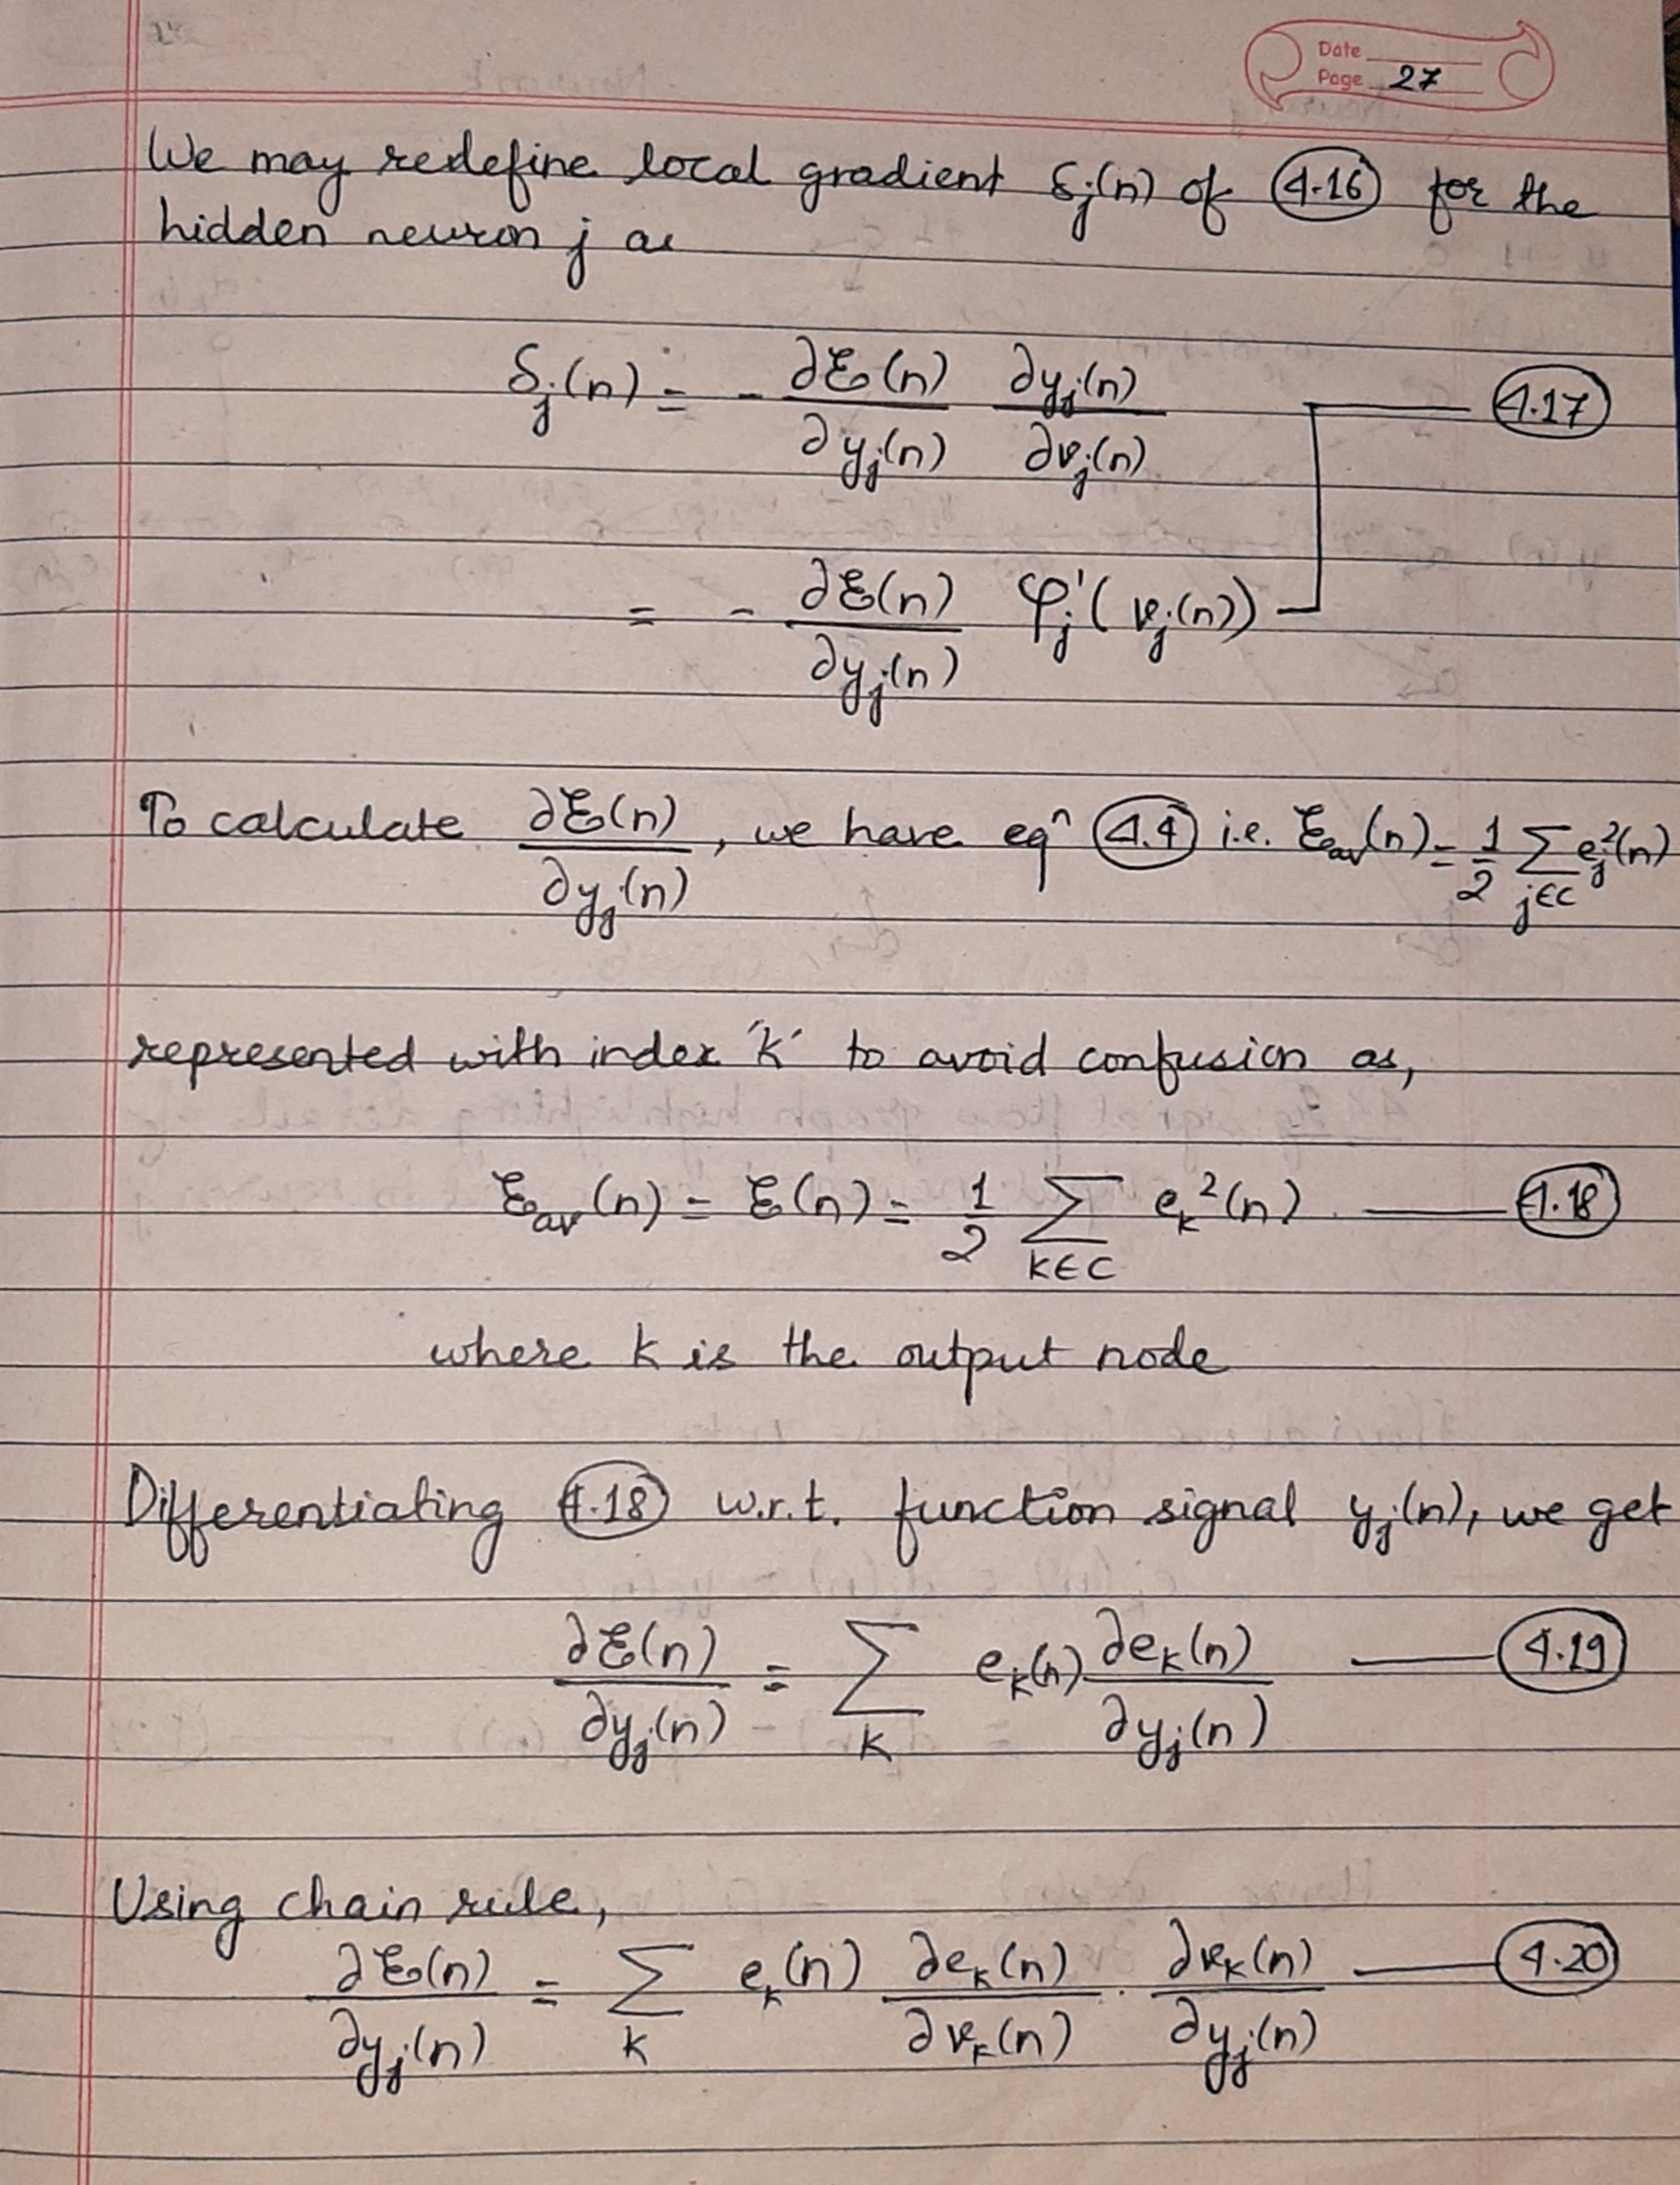 Date
Page 27
We may redefine local gradient δj(n) of (4.16) for the
hidden neuron j as
δj(n) = - ∂ξ(n)/∂yj(n) ∂yj(n)/∂vj(n) — (4.17)
= - ∂ξ(n)/∂yj(n) φj'(vj(n))
To calculate ∂ξ(n)/∂yj(n), we have eqⁿ (4.4) i.e. ξav(n) = 1/2 Σ j∈C ej²(n)
represented with index 'k' to avoid confusion as,
ξav(n) = ξ(n) = 1/2 Σ k∈C ek²(n) — (4.18)
where k is the output node
Differentiating (4.18) w.r.t. function signal yj(n), we get
∂ξ(n)/∂yj(n) = Σ k ek(n) ∂ek(n)/∂yj(n) — (4.19)
Using chain rule,
∂ξ(n)/∂yj(n) = Σ k ek(n) ∂ek(n)/∂vk(n) . ∂vk(n)/∂yj(n) — (4.20)